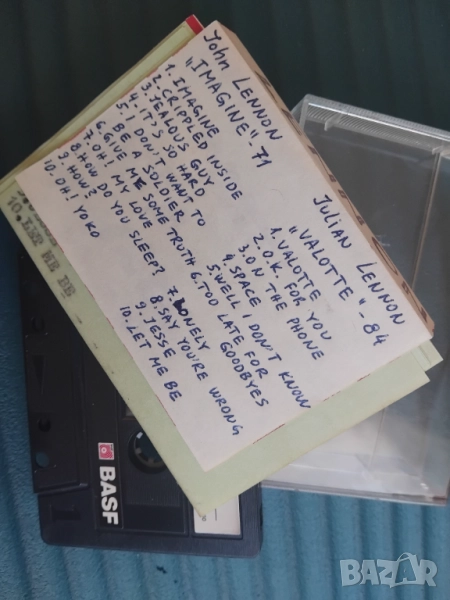 John LENNON
"IMAGINE" - 71
1. IMAGINE
2. CRIPPLED INSIDE
3. JEALOUS GUY
4. IT'S SO HARD
5. I DON'T WANT TO
BE A SOLDIER
6. GIVE ME SOME TRUTH
7. OH! MY LOVE
8. HOW DO YOU SLEEP?
9. HOW?
10. OH! YOKO
Julian LENNON
"VALOTTE" - 84
1. VALOTTE
2. O.K. FOR YOU
3. ON THE PHONE
4. SPACE
5. WELL I DON'T KNOW
6. TOO LATE FOR
GOODBYES
7. LONELY
8. SAY YOU'RE WRONG
9. JESSE
10. LET ME BE
10. LET ME BE
BASF
BAZAR